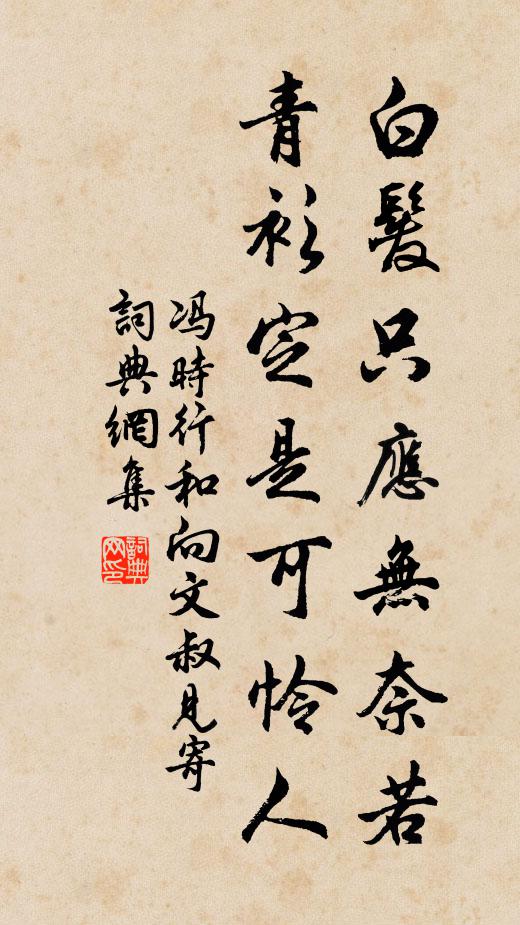 白髮只應無奈若
青衫定是可怜人
冯時行和向文叔見寄
詞典網集
詞典网印